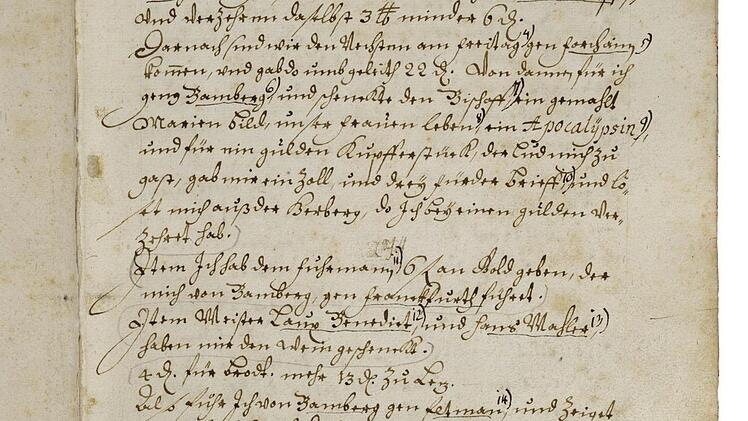 und verzehrnn daselbst 3 ℔ minder 6 ₰.
Darnach sind wir den Nechsten am freitag 4) gen forchaim 5)
kommen, und gab do umb geleith 22 ₰. Von dannen für ich
geng Bamberg 6), und schenckte den Bischoff 7) ein gemahlt
Marien bild, unser frauen leben 8), ein Apocalÿpsin 9)
und für ein gülden Kupfferstück, der lud mich zu
gast, gab mir ein Zoll, und dreÿ fürder brieff 10), und lö-
set mich auß der Herberg, do Ich beÿ einen gülden Ver-
zehret hab.
Item Ich hab dem fuhrmann 11) 6 f an Gold geben, der
mich von Bamberg, gen franckfurth führet.
Item Meister Laux Benedict 12), und Hans Mahler 13)
haben mir den Wein geschenckt.
4 ₰. für brodt. mehr 13 ₰. zu Letz.
Also fuhr Ich von Bamberg gen Eltman 14), und Zeiget